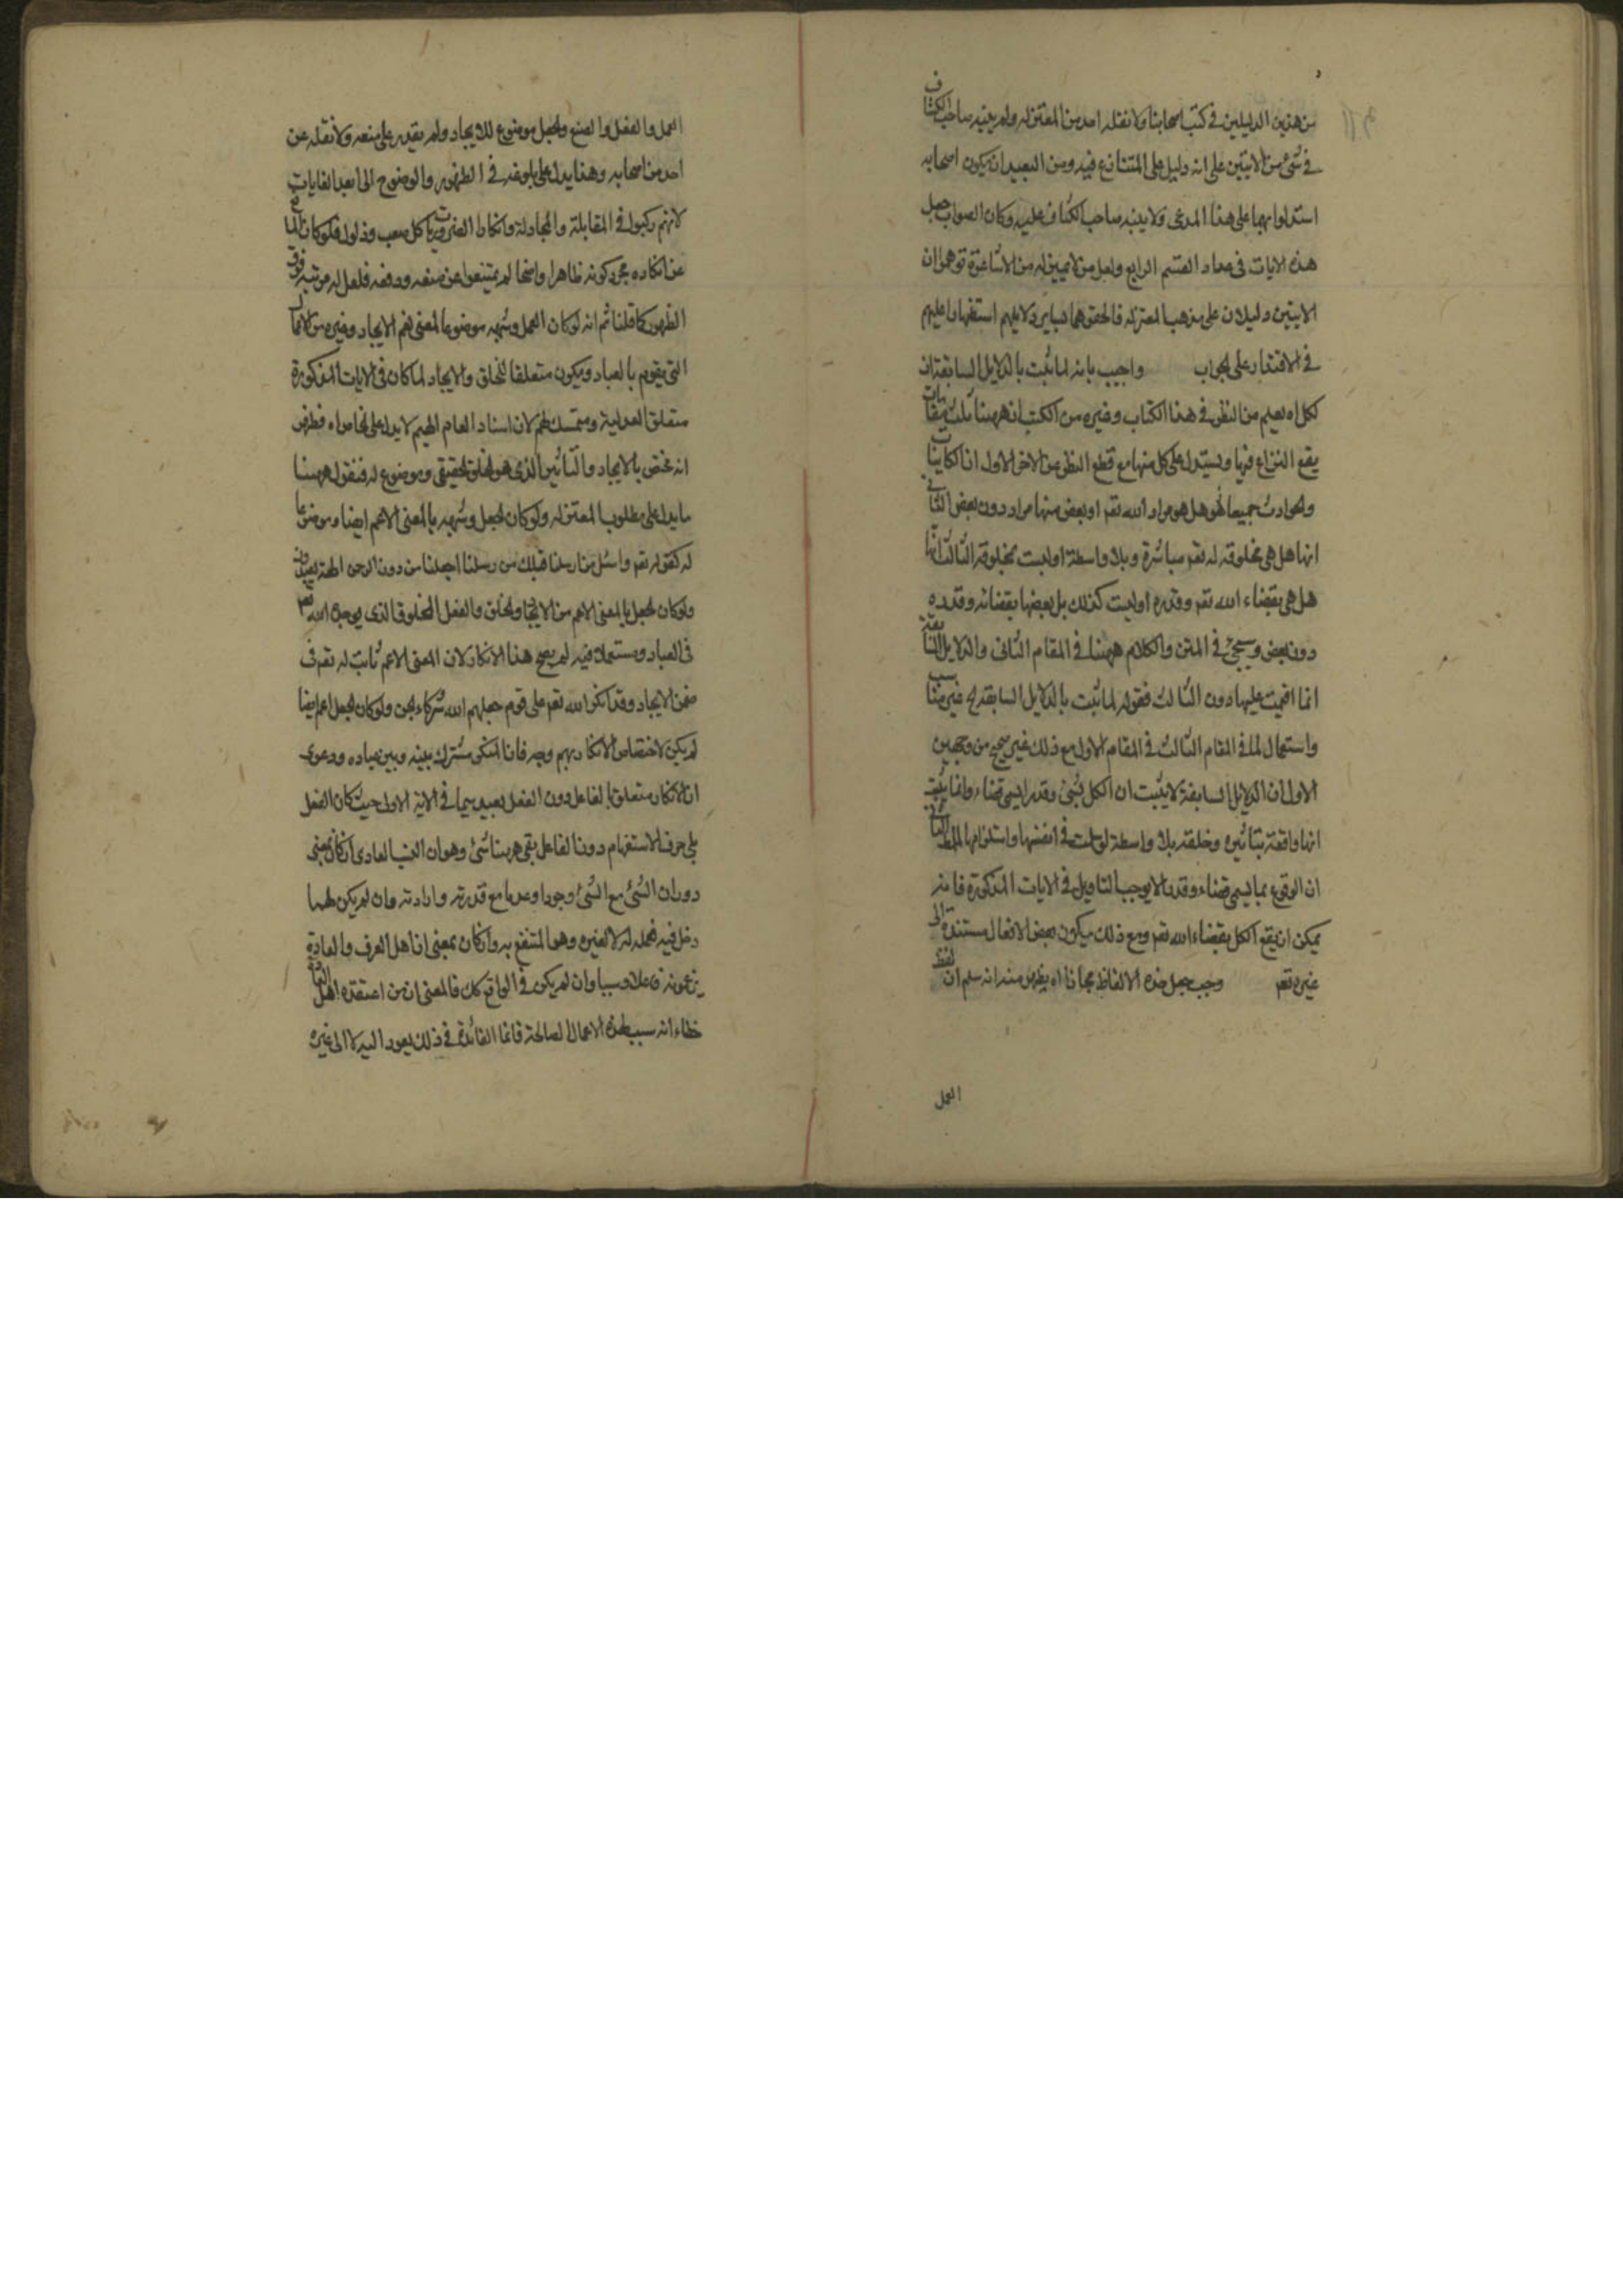 من هذين الدليلين في كتب اصحابنا ولا نقله احد من المعتزله ولم ينبه صاحب الكشاف
في شئ من الايتين على انه دليل على المتنازع فيه ومن البعيد ان يكون اصحابه
استدلوا بهما على هذا المدعى ولا ينبه صاحب الكشاف عليه وكان الصواب جعل
هذه الايات في عداد القسم الرابع ولعل من لا تمييز له من الاشاعرة توهم ان
الايتين دليلان على مذهب المعتزله فالحقوهما بساير دلايلهم استظهارا عليهم
في الاقتدار على الجواب واجيب بانه لما ثبت بالدلايل السابقة ان
لكل اه يعلم من النظر في هذا الكتاب وغيره من الكتب ان ههنا ثلث مقامات
يقع النزاع فيها ويستدل على كل منها مع قطع النظر عن الاخر الاول ان الكاينات
والحوادث جميعا هل هو مراد الله تعم او بعض منها مراد دون بعض الثاني
انها هل هي مخلوقة له تعم مباشرة وبلا واسطة او ليست بمخلوقة الثالث انها
هل هي بقضاء الله تعم وقدره او ليست كذلك بل بعضها بقضائه وقدره
دون بعض وسيجئ في المتن والكلام ههنا في المقام الثاني والدلايل السابقة
انما اقيمت عليها دون الثالث فقوله لما ثبت بالدلايل السابقة لخ غير مناسب
واستعمال لما في المقام الثالث في المقام الاول مع ذلك غير صحيح من وجهين
الاول ان الدلايل السابقة لا يثبت ان الكل بشئ وقدر ليسمى قضاء وانما يثبت
انها واقعة بتاثيره وخلقه بلا واسطة لو تمت في انفسها واستلزامها للمط الثاني
ان الوقوع بما يسمى قضاء وقدرا لا يوجب التاويل في الايات المذكورة فانه
يمكن ان يقع الكل بقضاء الله تعم ومع ذلك يكون بعض الافعال مستندة الى
غيره تعم وجب جعل هذه الالفاظ مجازا اه يظهر منه انه سلم ان لفظ
العمل
العمل والفعل والصنع والجعل موضوع للايجاد ولم يقدر على منعه ولا نقله عن
احد من اصحابه وهذا يدل على بلوغه في الظهور والوضوح الى ابعد الغايات
لانهم ركبوا في المقابلة والمجادلة وانكار الضروريات كل صعب وذلول فلو كان المانع
عن انكاره مجرد كونه ظاهرا واضحا لم يمتنعوا عن منعه ودفعه فلعل له مرتبه فوق
الظهور كما قلنا ثم انه لو كان العمل وشبهه موضوعا لمعنى يعم الايجاد وغيره من الاعمال
التي يقوم بالعباد ويكون متعلقا للخلق والايجاد لما كان في الايات المذكورة
متعلق العدلية ومتمسك لهم لان اسناد العام اليهم لا يدل على الخاص اه فظهر
انه مختص بالايجاد والتاثير الذي هو الخلق الحقيقي وموضوع له فنقول ههنا
ما يدل على مطلوب المعتزله ولو كان الجعل وشبهه بالمعنى الاعم ايضا وموضوعا
له كقوله تعم واسئل من ارسلنا قبلك من رسلنا اجعلنا من دون الرحمن الهة يعبدون
ولو كان الجعل بالمعنى الاعم من الايجاد والخلق والفعل المخلوق الذي يوجده الله تعم
في العباد ومستعملا فيه لم يصح هذا الانكار لان المعنى الاعم ثابت له تعم في
ضمن الايجاد وقد انكر الله تعم على قوم جعلهم الله شركاء الجن ولو كان الجعل اعم ايضا
لم يكن لاختصاص الانكار بهم وجه فان المنكر مشترك بينه وبين عباده ودعوى
ان الانكار متعلق بالفاعل دون الفعل بعيد سيما في الاية الاولى حيث كان الفعل
يلي حرف الاستفهام دون الفاعل بقي ههنا شئ وهو ان السبب العادي ان كان بمعنى
دوران الشئ مع الشئ وجودا وعدما مع قدرته وارادته وان لم يكن لهما
دخل فيه فعمله له لا لغيره وهو المنتفع به وان كان بمعنى ان اهل العرف والعادة
يزعمونه فاعلا وسببا وان لم يكن في الواقع كك فالمعنى ان من اعتقده اهل العادة
خطاء انه سبب لهذه الاعمال الصالحة فانما الفائدة في ذلك يعود اليه لا الى غيره